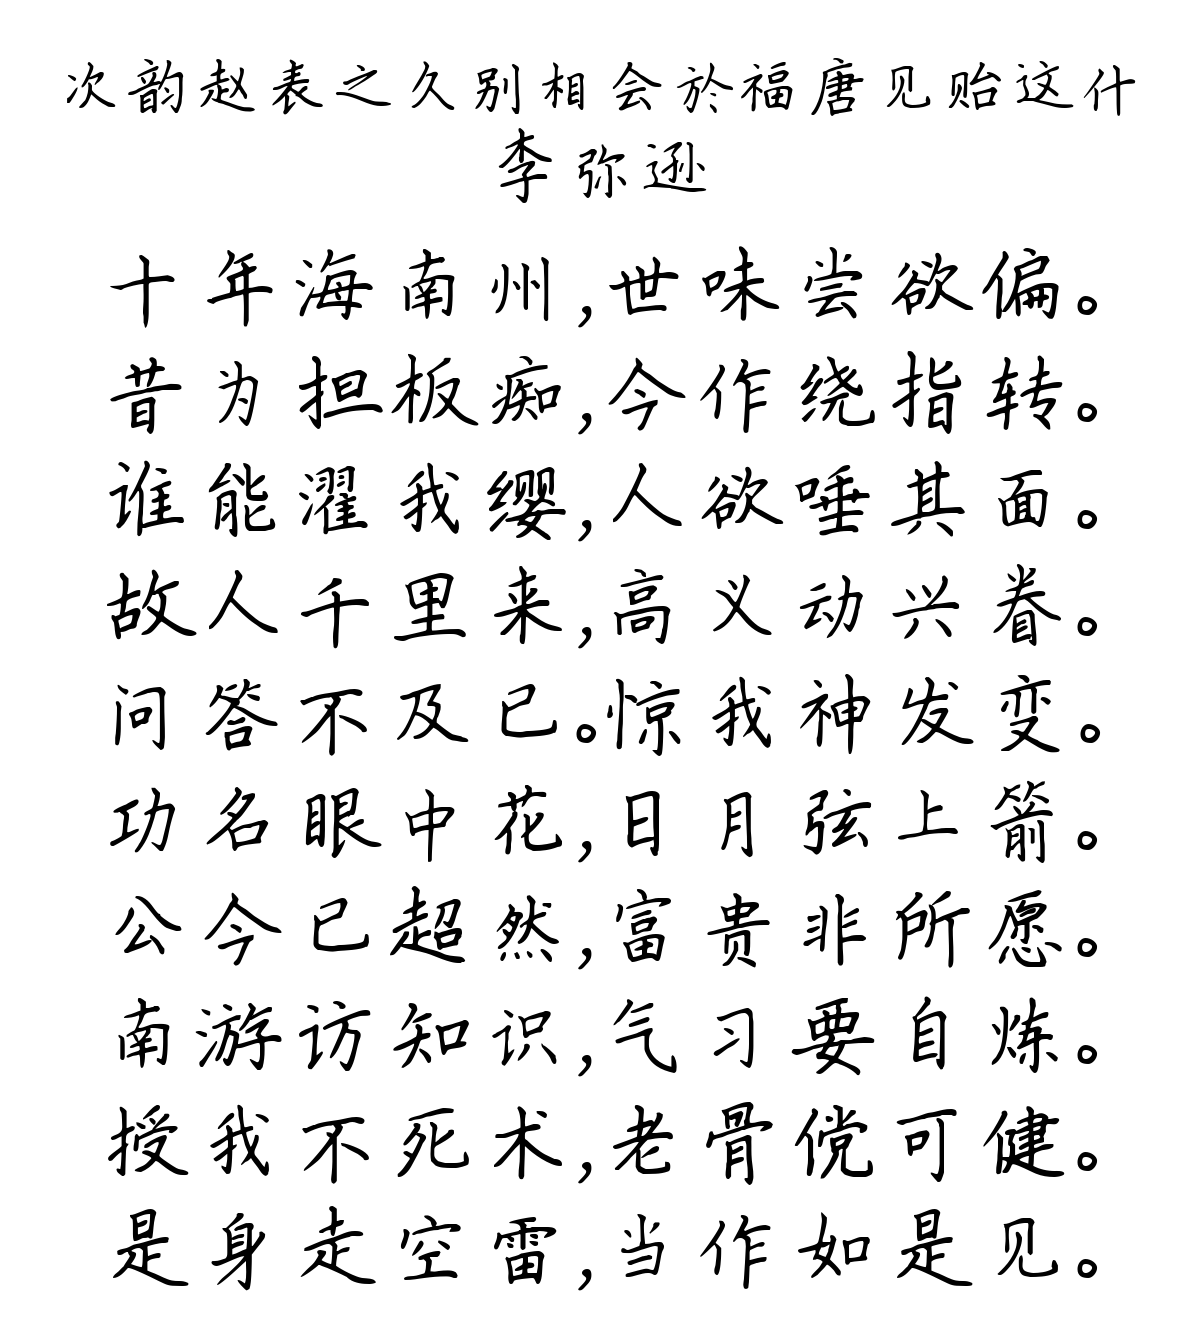 次韵赵表之久别相会於福唐见贻这什
李弥逊
十年海南州,世味尝欲偏。
昔为担板痴,今作绕指转。
谁能濯我缨,人欲唾其面。
故人千里来,高义动兴眷。
问答不及已。惊我神发变。
功名眼中花,日月弦上箭。
公今已超然,富贵非所愿。
南游访知识,气习要自炼。
授我不死术,老骨傥可健。
是身走空雷,当作如是见。